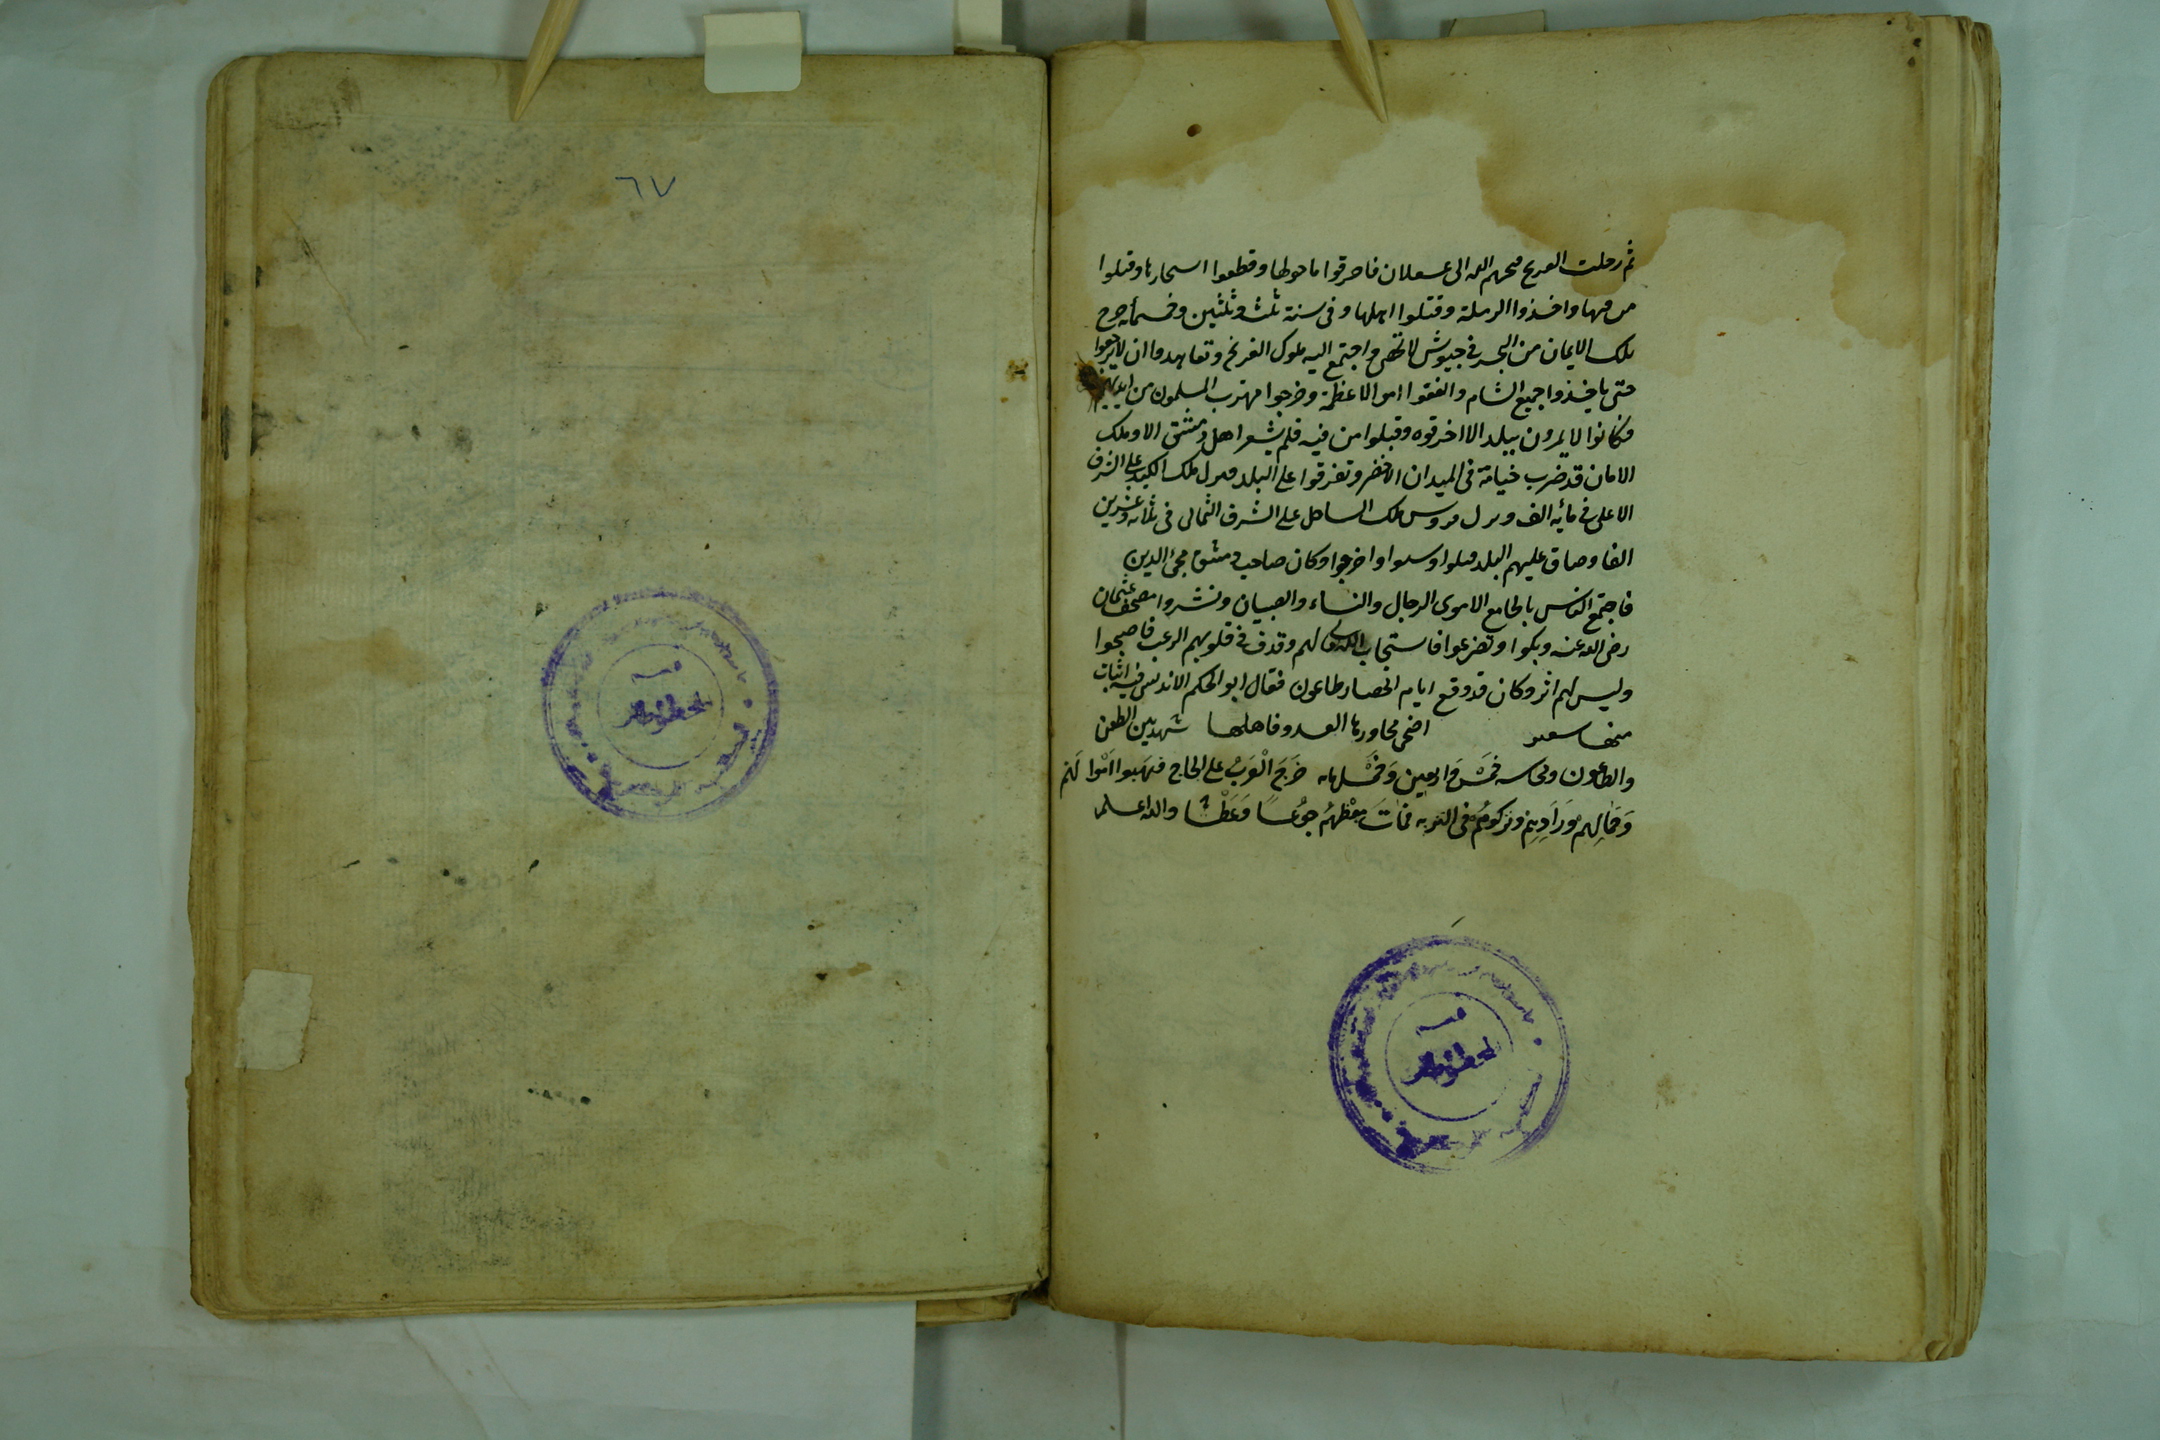 ثم رحلت الفرنج قبحهم الله الى عسقلان فاحرقوا ما حولها وقطعوا اسحارها وقتلوا
من فيها واخذوا الرملة وقتلوا اهلها وفى سنة ثلث وثلثين وخمسمأيه خرج
ملك الايمان من البحر فى جيوش لا تحصى واجتمع اليه ملوك الفرنج وتعاهدوا ان لا يرجعوا
حتى ياخذوا جميع الشام وانفقوا اموالا عظيمة وخرجوا فهرب المسلمون من ايديهم
فكانوا لا يمرون ببلد الا احرقوه وقتلوا من فيه فلم يشعر اهل دمشق الا وملك
الامان قد ضرب خيامه فى الميدان الاخضر وتفرقوا على البلد ونزل ملك على الشرف
الاعلى فى مايه الف ونزل ملك الساحل على الشرف الشمالى فى ثلاثه وعشرين
الفا وضاق عليهم البلد واخرجوا وكان صاحب دمشق مجى الدين
فاجتمع الناس بالجامع الاموى الرجال والنساء والصبيان ونشروا مصحف عثمان
رضى الله عنه وبكوا وتضرعوا فاستجاب الله لهم وقذف فى قلوبهم الرعب فاصبحوا
وليس لهم اثر وكان قد وقع ايام الحصار طاعون فقال ابو الحكم الاندلسى فيه ابيات
منها اضحى محاورها العدو فاهلها شهد بين الطعن
والطاعون وفى سنه خمس واربعين وخمسمايه خرج العرب على الحاج فنهبوا اموالهم
وجمالهم وزادهم وتركوهم فى البريه فمات معظهم جوعا وعطشا والله اعلم
٦٧